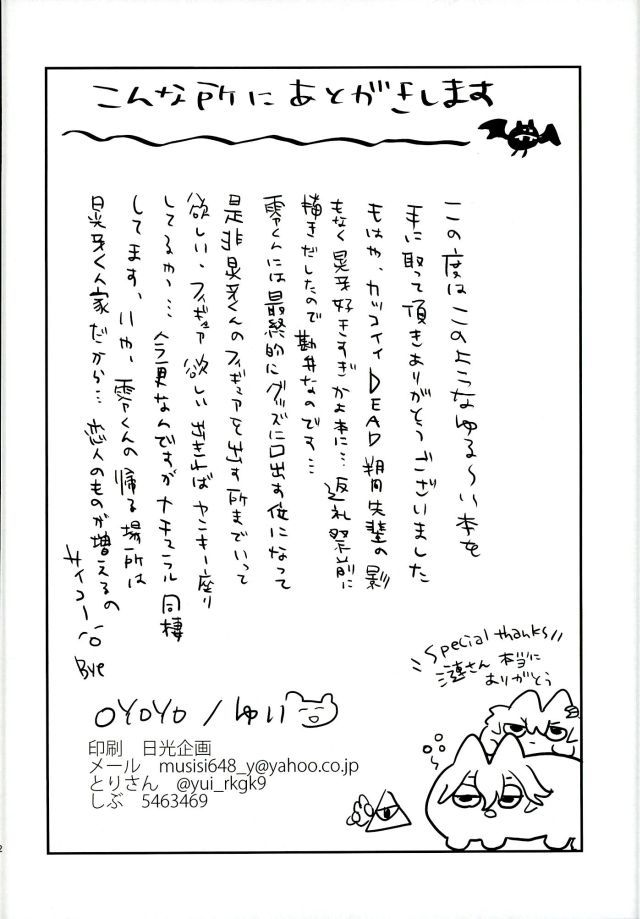 こんな所にあとがきします
この度はこのようなゆる～い本を
手に取って頂きありがとうございました
もはや、カッコイイDEAD朔間先輩の影
もなく晃牙好きすぎかよ本に…返礼祭前に
描きだしたので勘弁なのです…
零くんには最終的にグッズに口出す位になって
是非晃牙くんのフィギュアを出す所までいって
欲しい、フィギュア欲しい 出きればヤンキー座り
してるやつ… 今更なんですがナチュラル同棲
してます、いや、零くんの帰る場所は
晃牙くん家だから… 恋人のものが増えるの
サイコー
Bye
Special thanks!!
さん 本当に
ありがとう
OYOYO / ゆい
印刷　日光企画
メール　musisi648_y@yahoo.co.jp
とりさん　@yui_rkgk9
しぶ　5463469
2